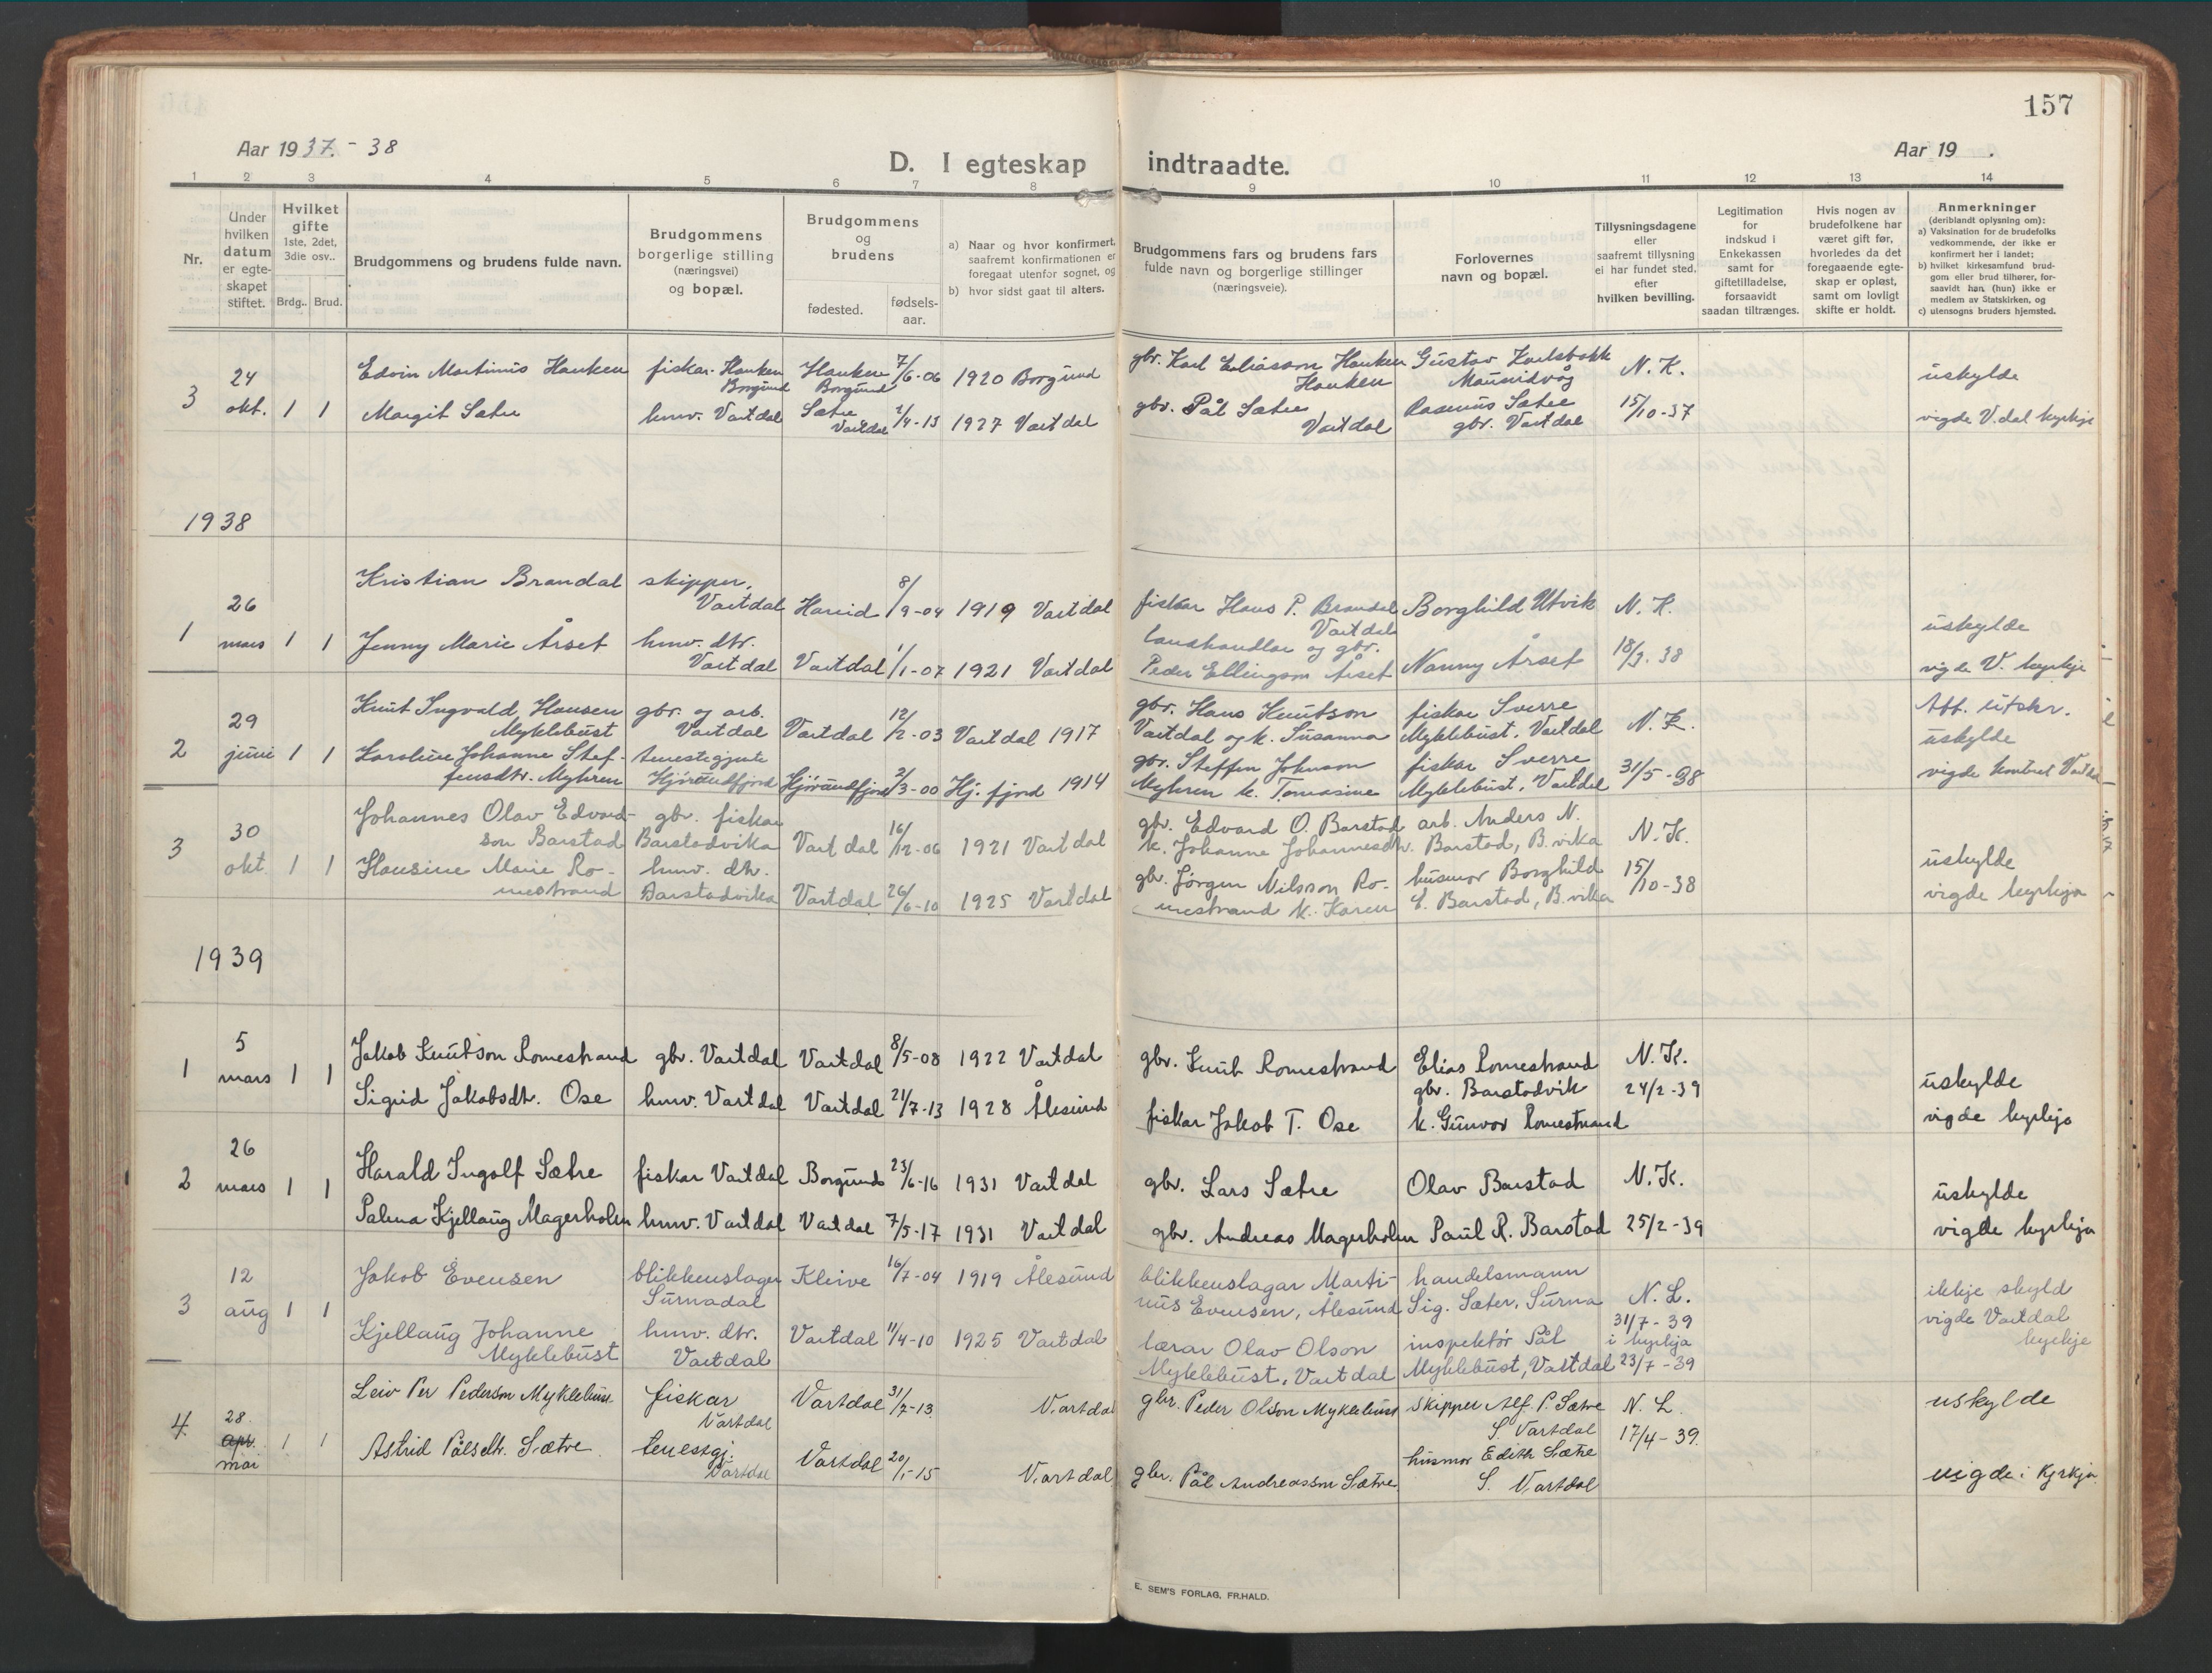 157
Aar 1937.-38
D. I egteskap indtraadte.
Aar 19 .
1 2 3 4 5 6 7 8 9 10 11 12 13 14
Nr.
Under hvilken datum er egte-skapet stiftet.
Hvilket gifte 1ste, 2det, 3die osv..
Brdg.. Brud.
Brudgommens og brudens fulde navn.
Brudgommens borgerlige stilling (næringsvei) og bopæl.
Brudgommens og brudens
fødested.
fødsels-aar.
a) Naar og hvor konfirmert, saafremt konfirmationen er foregaat utenfor sognet, og
b) hvor sidst gaat til alters.
Brudgommens fars og brudens fars fulde navn og borgerlige stillinger (næringsveie).
Forlovernes navn og bopæl.
Tillysningsdagene eller saafremt tillysning ei har fundet sted, efter hvilken bevilling.
Legitimation for indskud i Enkekassen samt for giftetilladelse, forsaavidt saadan tiltrænges.
Hvis nogen av brudefolkene har været gift før, hvorledes da det foregaaende egte-skap er opløst, samt om lovligt skifte er holdt.
Anmerkninger (deriblandt oplysning om):
a) Vaksination for de brudefolks vedkommende, der ikke er konfirmert her i landet;
b) hvilket kirkesamfund brud-gom eller brud tilhører, for-saavidt han (hun) ikke er medlem av Statskirken, og
c) utensogns bruders hjemsted.
3 24 okt. 1 1
Edvin Martinus Hanken fiskar. Hanken Borgund Hanken Borgund 7/6-06 1920 Borgund gbr. Karl Eliasson Hanken Hanken Gustav Karlsbakk Mauseidvåg N. K. uskylde
Margit Sætre hmv. Vartdal Sætre Vartdal 2/4-13 1927 Vartdal gbr. Pål Sætre Vartdal Rasmus Sætre gbr. Vartdal 15/10-37 vigde V.dal kyrkje
1938
1 26 mars 1 1
Kristian Brandal skipper, Vartdal Hareid 8/9-04 1919 Vartdal fiskar Hans P. Brandal Vartdal Borghild Utvik N. K. uskylde
Jenny Marie Årset hmv. dtr. Vartdal Vartdal 1/1-07 1921 Vartdal landhandlar og gbr. Peder Ellingson Årset Nanny Årset 18/3. 38 vigde V. kyrkje
2 29 juni 1 1
Knut Ingvald Hansen Myklebust gbr. og arb. Vartdal Vartdal 12/2-03 Vartdal 1917 gbr. Hans Knutson Vartdal og k. Susanna fiskar Sverre Myklebust, Vartdal N. K. Att. utskr. uskylde
Karoline Johanne Stef-fensdtr. Myhren tenestegjente Hjørundfjord Hjørundfjord 2/3-00 Hj. fjord 1914 gbr. Steffen Johnson Myhren k. Tomasine fiskar Sverre Myklebust, Vartdal 31/5-38 vigde kontoret Vartdal
3 30 okt. 1 1
Johannes Olav Edvard-son Barstad gbr. fiskar Barstadvika Vartdal 16/12-06 1921 Vartdal gbr. Edvard O. Barstad k. Johanne Johannesdtr. arb. Anders N. Barstad, B.vika N. K. uskylde
Hansine Marie Ro-mestrand hmv. dtr. Barstadvika Vartdal 26/6-10 1925 Vartdal gbr. Jørgen Nilsson Ro-mestrand k. Karen husmor Borghild E. Barstad, B.vika 15/10-38 vigde kyrkja
1939
1 5 mars 1 1
Jakob Knutson Romestrand gbr. Vartdal Vartdal 8/5-08 1922 Vartdal gbr. Knut Romestrand Elias Romestrand gbr. Barstadvik N. K. 24/2-39 uskylde
Sigrid Jakobsdtr. Ose hmv. Vartdal Vartdal 21/7-13 1928 Ålesund fiskar Jakob T. Ose k. Gunvor Romestrand vigde kyrkja
2 26 mars 1 1
Harald Ingolf Sætre fiskar Vartdal Borgund 23/6-16 1931 Vartdal gbr. Lars Sætre Olav Barstad N. K. uskylde
Palma Kjellaug Magerholm hmv. Vartdal Vartdal 7/5-17 1931 Vartdal gbr. Andreas Magerholm Paul R. Barstad 25/2-39 vigde kyrkja
3 12 aug 1 1
Jakob Evensen blikkenslager Surnadal Kleive 16/7-04 1919 Ålesund blikkenslagar Marti-nus Evensen, Ålesund handelsmann Sig. Sæter, Surna N. L. 31/7-39 ikkje skyld
Kjellaug Johanne Myklebust hmv. dtr. Vartdal Vartdal 11/4-10 1925 Vartdal lærar Olav Olson Myklebust, Vartdal inspektør Pål Myklebust, Vartdal i kyrkja 23/7-39 vigde Vartdal kyrkje
4. 28. apr. mai 1 1
Leiv Per Pederson Myklebust fiskar Vartdal Vartdal 31/7-13 Vartdal gbr. Peder Olson Myklebust skipper Alf P. Sætre S. Vartdal N. L. 17/4-39. uskylde
Astrid Pålsdtr. Sætre tenestgj. Vartdal Vartdal 20/1-15 Vartdal gbr. Pål Andreasson Sætre husmor Edith Sætre S. Vartdal vigde i kyrkja
E. SEM'S FORLAG, FR.HALD.